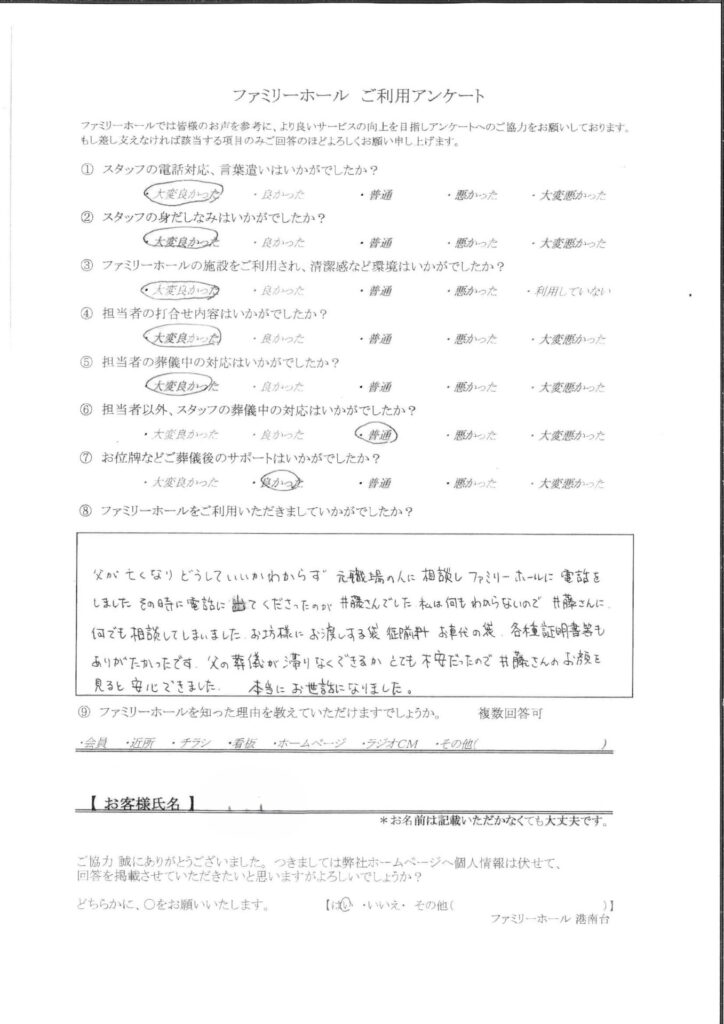 ファミリーホール ご利用アンケート
ファミリーホールでは皆様のお声を参考に、より良いサービスの向上を目指しアンケートへのご協力をお願いしております。
もし差し支えなければ該当する項目のみご回答のほどよろしくお願い申し上げます。
① スタッフの電話対応、言葉遣いはいかがでしたか？
・大変良かった ・良かった ・普通 ・悪かった ・大変悪かった
② スタッフの身だしなみはいかがでしたか？
・大変良かった ・良かった ・普通 ・悪かった ・大変悪かった
③ ファミリーホールの施設をご利用され、清潔感など環境はいかがでしたか？
・大変良かった ・良かった ・普通 ・悪かった ・利用していない
④ 担当者の打合せ内容はいかがでしたか？
・大変良かった ・良かった ・普通 ・悪かった ・大変悪かった
⑤ 担当者の葬儀中の対応はいかがでしたか？
・大変良かった ・良かった ・普通 ・悪かった ・大変悪かった
⑥ 担当者以外、スタッフの葬儀中の対応はいかがでしたか？
・大変良かった ・良かった ・普通 ・悪かった ・大変悪かった
⑦ お位牌などご葬儀後のサポートはいかがでしたか？
・大変良かった ・良かった ・普通 ・悪かった ・大変悪かった
⑧ ファミリーホールをご利用いただきましていかがでしたか？
父が亡くなりどうしていいかわからず 元職場の人に相談しファミリーホールに電話を
しました その時に電話に出てくださったのが井藤さんでした 私は何もわからないので井藤さんに
何でも相談してしまいました.お坊様にお渡しする袋 お車代の袋.各種証明書等も
ありがたかったです.父の葬儀が滞りなくできるかとても不安だったので井藤さんのお顔を
見ると安心できました. 本当にお世話になりました。
⑨ ファミリーホールを知った理由を教えていただけますでしょうか。 複数回答可
・会員 ・近所 ・チラシ ・看板 ・ホームページ ・ラジオCM ・その他( )
【 お客様氏名 】
＊お名前は記載いただかなくても大丈夫です。
ご協力 誠にありがとうございました。つきましては弊社ホームページへ個人情報は伏せて、
回答を掲載させていただきたいと思いますがよろしいでしょうか？
どちらかに、○をお願いいたします。 【はい ・いいえ・ その他( )】
ファミリーホール 港南台